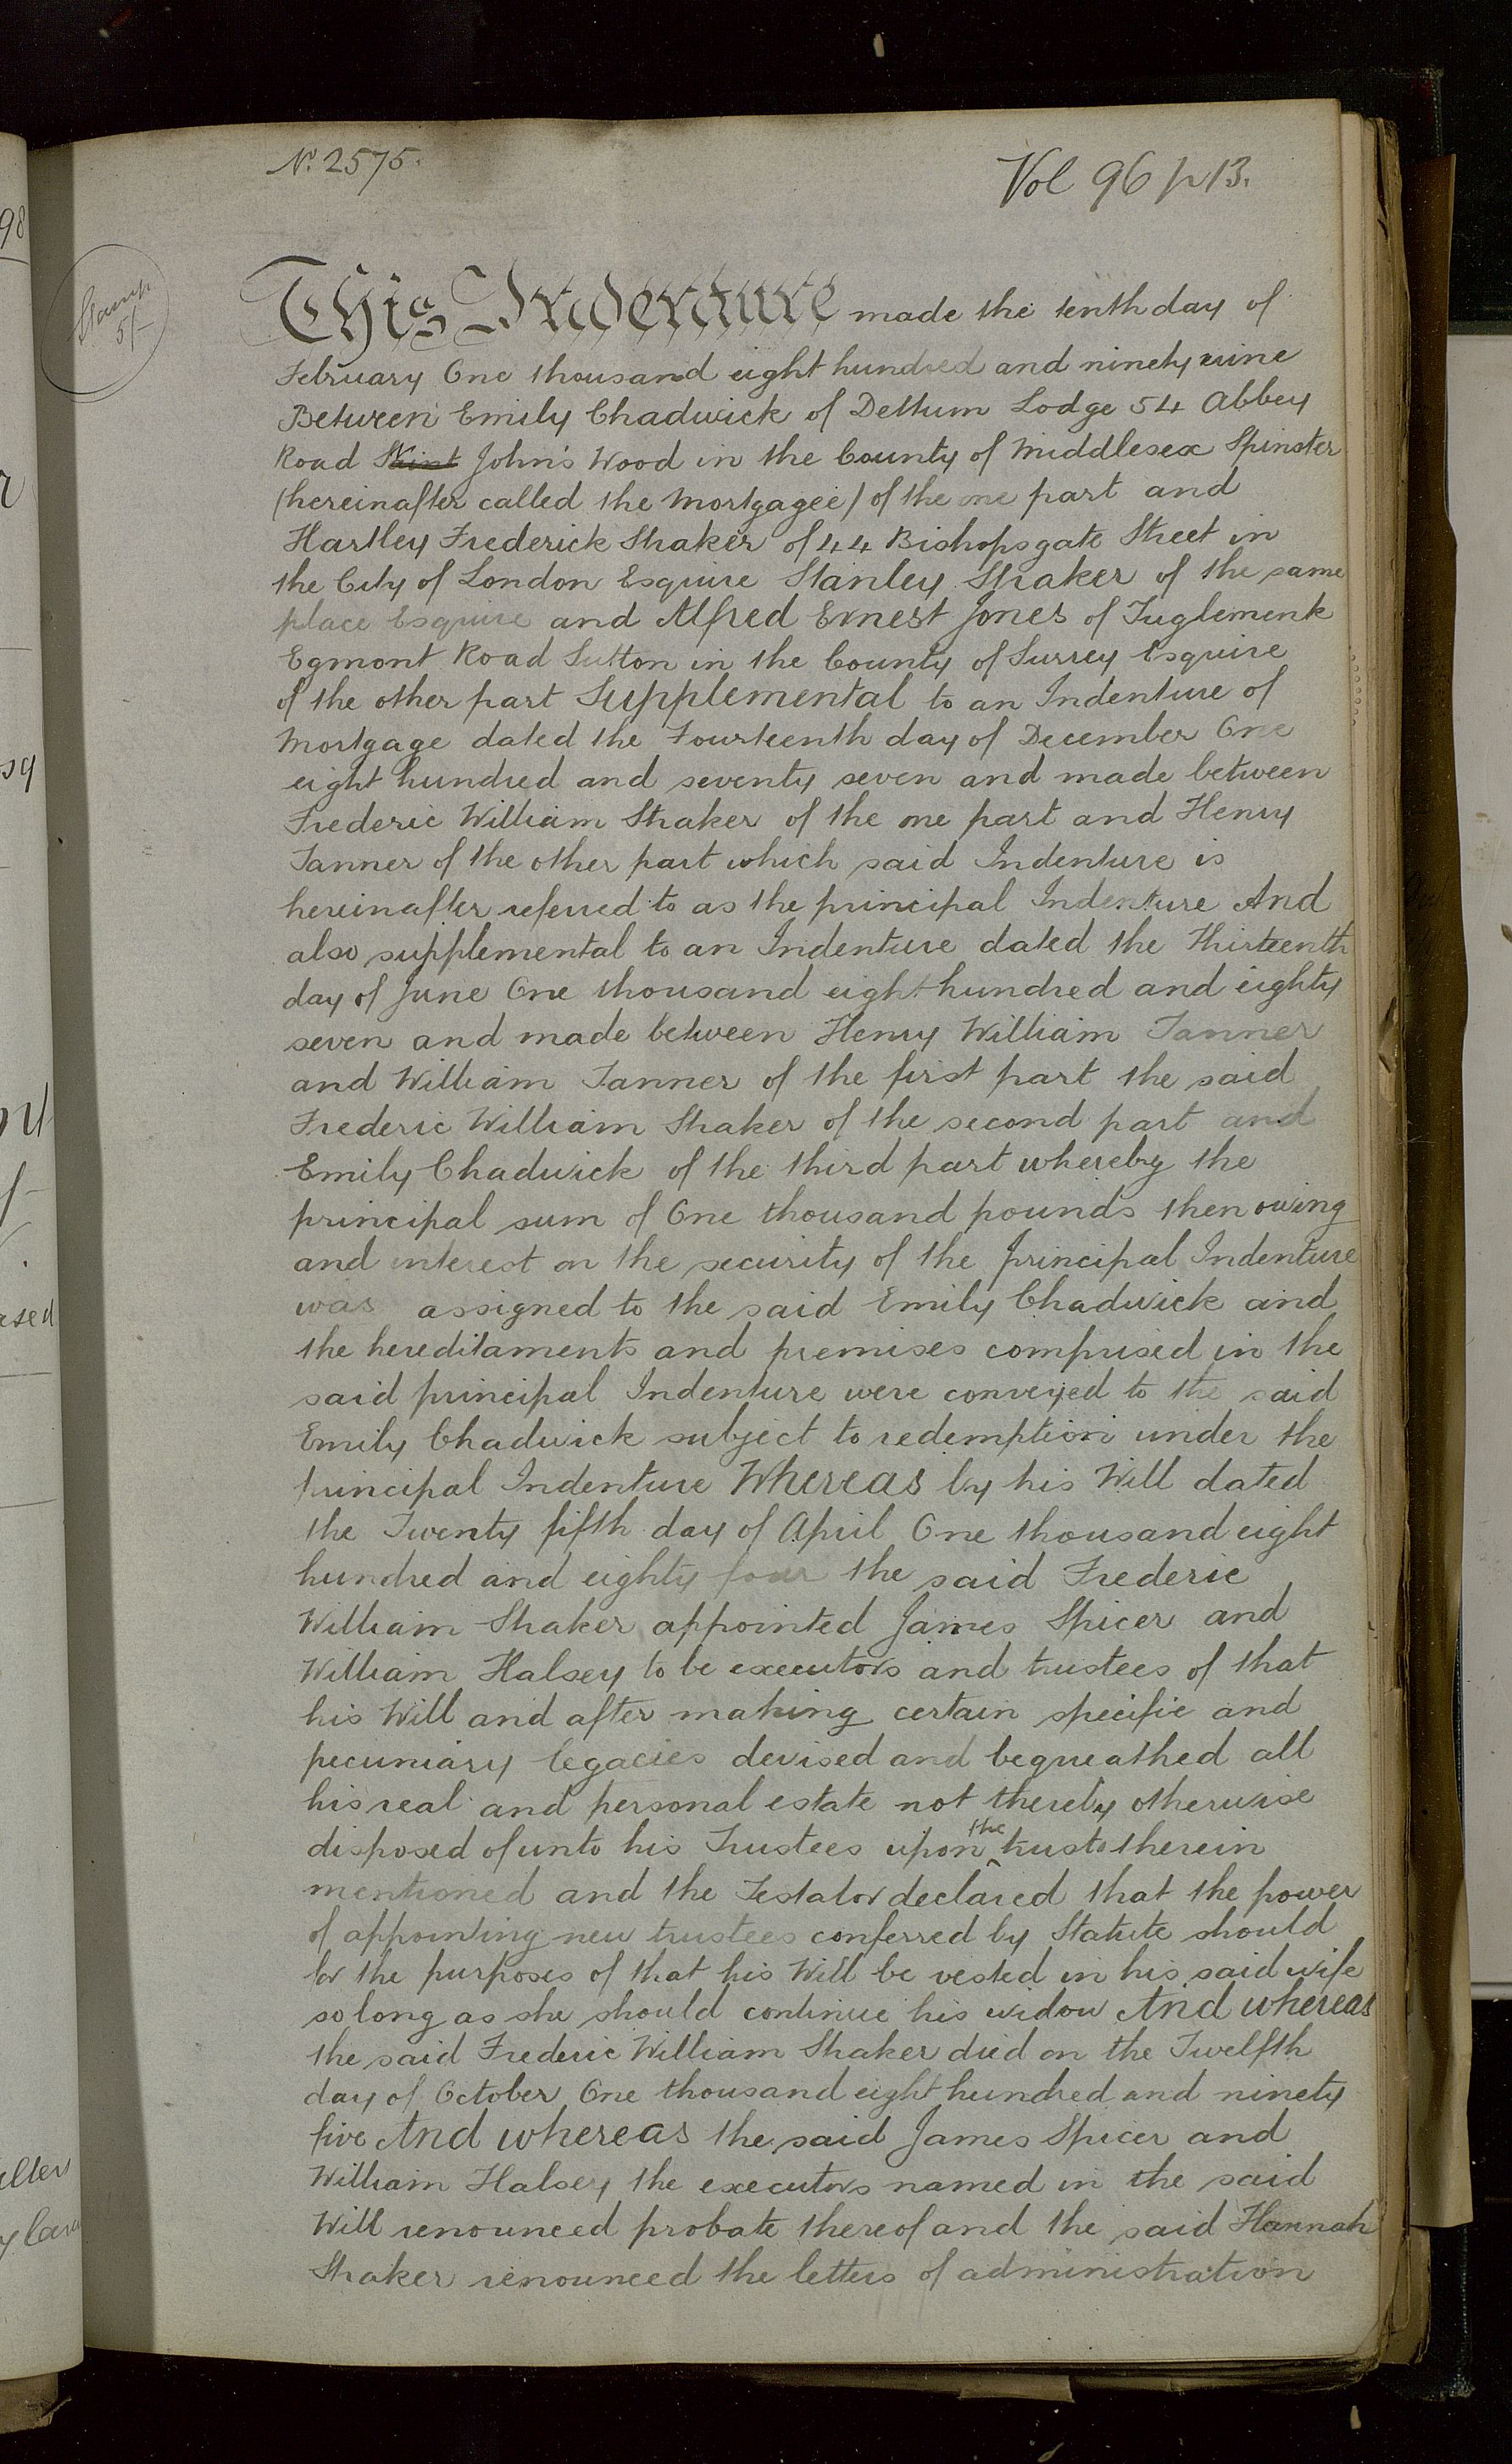 No. 2575.
Vol 96 p 13.
Stamp
5/-
This Indenture made the tenth day of
February One thousand eight hundred and ninety nine
Between Emily Chadwick of Deltum Lodge 54 Abbey
Road Saint John's Wood in the County of Middlesex Spinster
(hereinafter called the Mortgagee) of the one part and
Hartley Frederick Straker of 44 Bishopsgate Street in
the City of London Esquire Stanley Straker of the same
place Esquire and Alfred Ernest Jones of
Egmont Road Sutton in the County of Surrey Esquire
of the other part Supplemental to an Indenture of
Mortgage dated the Fourteenth day of December One
eight hundred and seventy seven and made between
Frederic William Straker of the one part and Henry
Tanner of the other part which said Indenture is
hereinafter referred to as the principal Indenture And
also supplemental to an Indenture dated the Thirteenth
day of June One thousand eight hundred and eighty
seven and made between Henry William Tanner
and William Tanner of the first part the said
Frederic William Straker of the second part and
Emily Chadwick of the third part whereby the
principal sum of One thousand pounds then owing
and interest on the security of the principal Indenture
was assigned to the said Emily Chadwick and
the hereditaments and premises comprised in the
said principal Indenture were conveyed to the said
Emily Chadwick subject to redemption under the
principal Indenture Whereas by his Will dated
the Twenty fifth day of April One thousand eight
hundred and eighty four the said Frederic
William Straker appointed James Spicer and
William Halsey to be executors and trustees of that
his Will and after making certain specific and
pecuniary legacies devised and bequeathed all
his real and personal estate not thereby otherwise
disposed of unto his Trustees upon the trusts therein
mentioned and the Testator declared that the power
of appointing new trustees conferred by Statute should
for the purposes of that his Will be vested in his said wife
so long as she should continue his widow And whereas
the said Frederic William Straker died on the Twelfth
day of October One thousand eight hundred and ninety
five And whereas the said James Spicer and
William Halsey the executors named in the said
Will renounced probate thereof and the said Hannah
Straker renounced the letters of administration